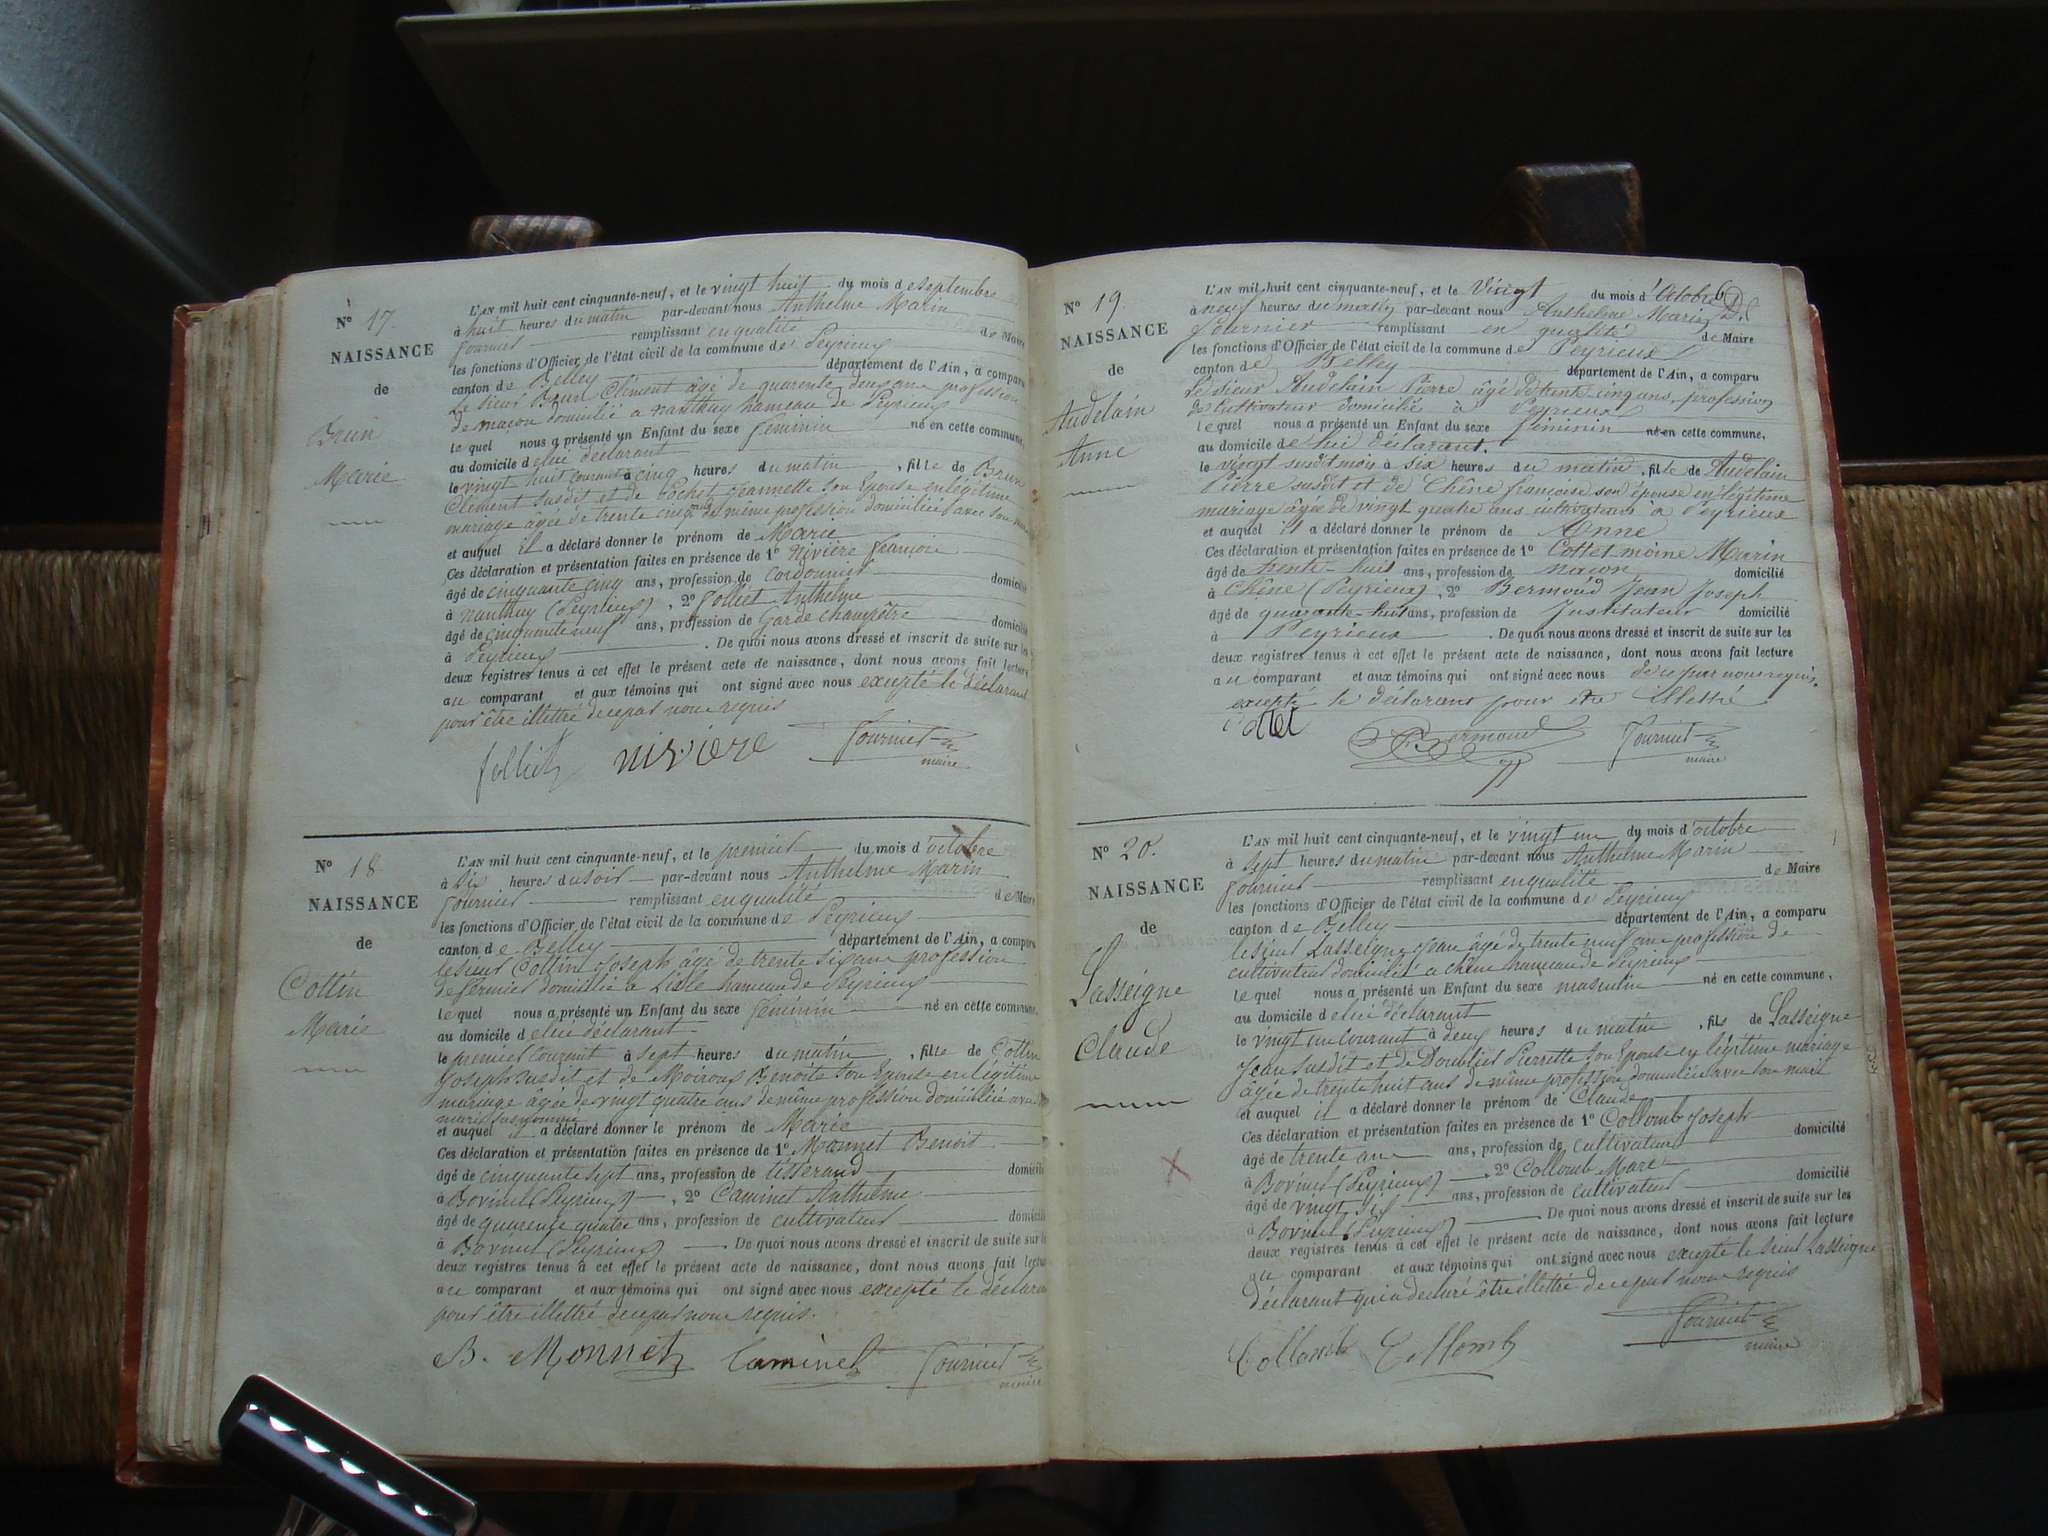 N° 17.
NAISSANCE
de
Brun
Marie
L'AN mil huit cent cinquante-neuf, et le vingt huit du mois de Septembre
à huit heures du matin par-devant nous Anthelme Marin
Fournier remplissant en qualité de Maire
les fonctions d'Officier de l'état civil de la commune de Peyrieux
canton de Belley département de l'Ain, a comparu
Le sieur Brun Clément âgé de quarente deux ans profession
de maçon domicilié a nanthuy hameau de Peyrieux
lequel nous a présenté un Enfant du sexe féminin né en cette commune,
au domicile de lui déclarant
le vingt huit courant à cinq heures du matin, fille de Brun
Clément susdit et de Pochet Jeannette son Epouse en légitime
mariage agée de trente cinq ans de même profession domiciliée avec son
et auquel il a déclaré donner le prénom de Marie
Ces déclaration et présentation faites en présence de 1° Nivière françois
âgé de cinquante cinq ans, profession de Cordonnier domicilié
à nanthuy (Peyrieux), 2° Folliet Anthelme
âgé de cinquante neuf ans, profession de Garde champêtre domicilié
à Peyrieux. De quoi nous avons dressé et inscrit de suite sur les
deux registres tenus à cet effet le présent acte de naissance, dont nous avons fait lecture
au comparant et aux témoins qui ont signé avec nous excepté le déclarant
pour être illettré de ce par nous requis
folliet nivière Fournier
maire
N° 18
NAISSANCE
de
Cottin
Marie
L'AN mil huit cent cinquante-neuf, et le premier du mois d'octobre
à six heures du soir par-devant nous Anthelme Marin
Fournier remplissant en qualité de Maire
les fonctions d'Officier de l'état civil de la commune de Peyrieux
canton de Belley département de l'Ain, a comparu
le sieur Cottin Joseph âgé de trente six ans profession
de fermier domicilié a Lisle hameau de Peyrieux
lequel nous a présenté un Enfant du sexe féminin né en cette commune,
au domicile de lui déclarant
le premier courant à sept heures du matin, fille de Cottin
Joseph susdit et de Moiroux Benoite son Epouse en légitime
mariage âgée de vingt quatre ans de même profession domiciliée avec
mari susnommé
et auquel il a déclaré donner le prénom de Marie
Ces déclaration et présentation faites en présence de 1° Monnet Benoit
âgé de cinquante sept ans, profession de tisserand domicilié
à Bovinel (Peyrieux), 2° Caminet Anthelme
âgé de quarente quatre ans, profession de cultivateur domicilié
à Bovinel (Peyrieux). De quoi nous avons dressé et inscrit de suite sur les
deux registres tenus à cet effet le présent acte de naissance, dont nous avons fait lecture
au comparant et aux témoins qui ont signé avec nous excepté le déclarant
pour être illettré de ce par nous requis.
B. Monnet Caminet Fournier
maire
6
N° 19.
NAISSANCE
de
Audelain
Anne
L'AN mil huit cent cinquante-neuf, et le Vingt du mois d'Octobre
à neuf heures du matin par-devant nous Anthelme Marin
Fournier remplissant en qualité de Maire
les fonctions d'Officier de l'état civil de la commune de Peyrieux
canton de Belley département de l'Ain, a comparu
Le sieur Audelain Pierre âgé de trente cinq ans, profession
de Cultivateur domicilié à Peyrieux
lequel nous a présenté un Enfant du sexe féminin né en cette commune,
au domicile de lui déclarant.
le vingt susdit mois à six heures du matin, fille de Audelain
Pierre susdit et de Chêne françoise son épouse en légitime
mariage âgée de vingt quatre ans cultivateurs à Peyrieux
et auquel il a déclaré donner le prénom de Anne
Ces déclaration et présentation faites en présence de 1° Cottet-moine Marin
âgé de trente-huit ans, profession de maçon domicilié
à Chêne (Peyrieux), 2° Bermond Jean Joseph
âgé de quarante-huit ans, profession de Instituteur domicilié
à Peyrieux. De quoi nous avons dressé et inscrit de suite sur les
deux registres tenus à cet effet le présent acte de naissance, dont nous avons fait lecture
au comparant et aux témoins qui ont signé avec nous de ce par nous requis.
excepté le déclarant pour être illettré
Cottet Bermond Fournier
maire
N° 20.
NAISSANCE
de
Lasseigne
Claude
L'AN mil huit cent cinquante-neuf, et le vingt un du mois d'octobre
à sept heures du matin par-devant nous Anthelme Marin
Fournier remplissant en qualité de Maire
les fonctions d'Officier de l'état civil de la commune de Peyrieux
canton de Belley département de l'Ain, a comparu
le sieur Lasseigne Jean âgé de trente neuf ans profession de
cultivateur domicilié a chêne hameau de Peyrieux
lequel nous a présenté un Enfant du sexe masculin né en cette commune,
au domicile de lui déclarant
le vingt un courant à deux heures du matin, fils de Lasseigne
Jean susdit et de Doublier Pierrette son Epouse en légitime mariage
âgée de trente huit ans de même profession domiciliée avec son mari
et auquel il a déclaré donner le prénom de Claude
Ces déclaration et présentation faites en présence de 1° Collomb Joseph
âgé de trente ans ans, profession de cultivateur domicilié
à Bovinel (Peyrieux), 2° Collomb Marc
âgé de vingt six ans, profession de cultivateur domicilié
à Bovinel (Peyrieux). De quoi nous avons dressé et inscrit de suite sur les
deux registres tenus à cet effet le présent acte de naissance, dont nous avons fait lecture
au comparant et aux témoins qui ont signé avec nous excepté le sieur Lasseigne
déclarant qui a déclaré être illettré de ce par nous requis
Collomb Collomb Fournier
maire